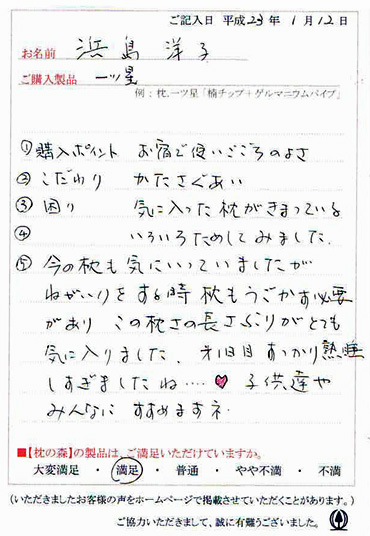 ご記入日 平成23年 1月12日
お名前 浜島 洋子
ご購入製品 一ツ星
例：枕.一ツ星「楠チップ+ゲルマニウムパイプ」
①購入ポイント お宿で使いごこちのよさ
②こだわり かたさぐあい
③困り 気に入った枕がきまっている
④ いろいろためしてみました.
⑤今の枕も気にいっていましたが
ねがいりをする時枕もうごかす必要
があり この枕さの長さぶりがとても
気に入りました、オ1日目すっかり熟睡
しすぎましたね....♥ 子供達や
みんなに すすめますネ.
■【枕の森】の製品は、ご満足いただけていますか。
大変満足 ・ 満足 ・ 普通 ・ やや不満 ・ 不満
（いただきましたお客様の声をホームページで掲載させていただくことがあります。）
ご協力いただきまして、誠に有難うございました。